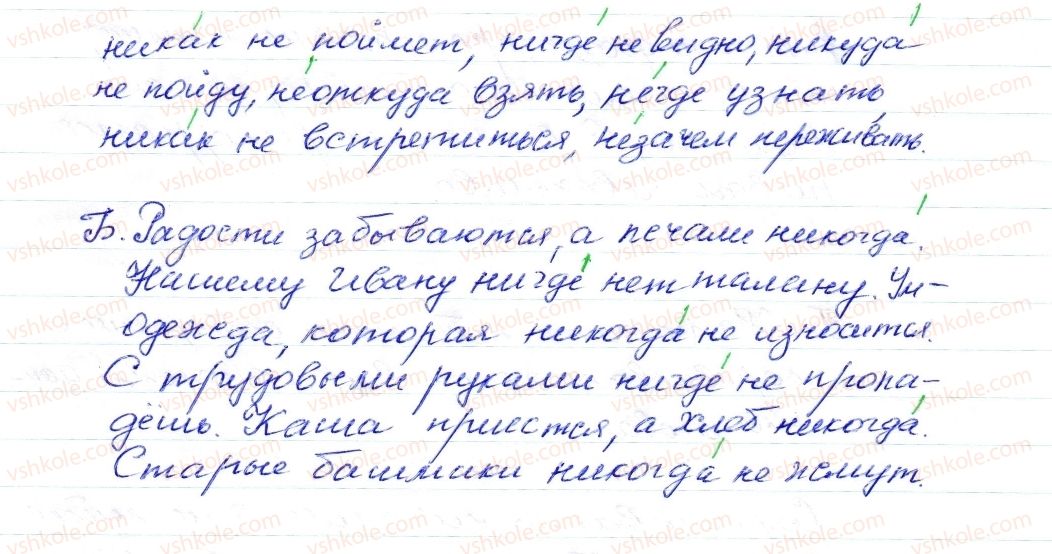 никак не поймет, нигде не видно, никуда
не пойду, неоткуда взять, негде узнать,
никак не встретиться, незачем переживать.
Б. Радости забываются, а печали никогда.
Нашему Ивану нигде нет талану. Ум-
одежда, которая никогда не износится.
С трудовыми руками нигде не пропа-
дёшь. Каша приестся, а хлеб никогда.
Старые башмаки никогда не жмут.